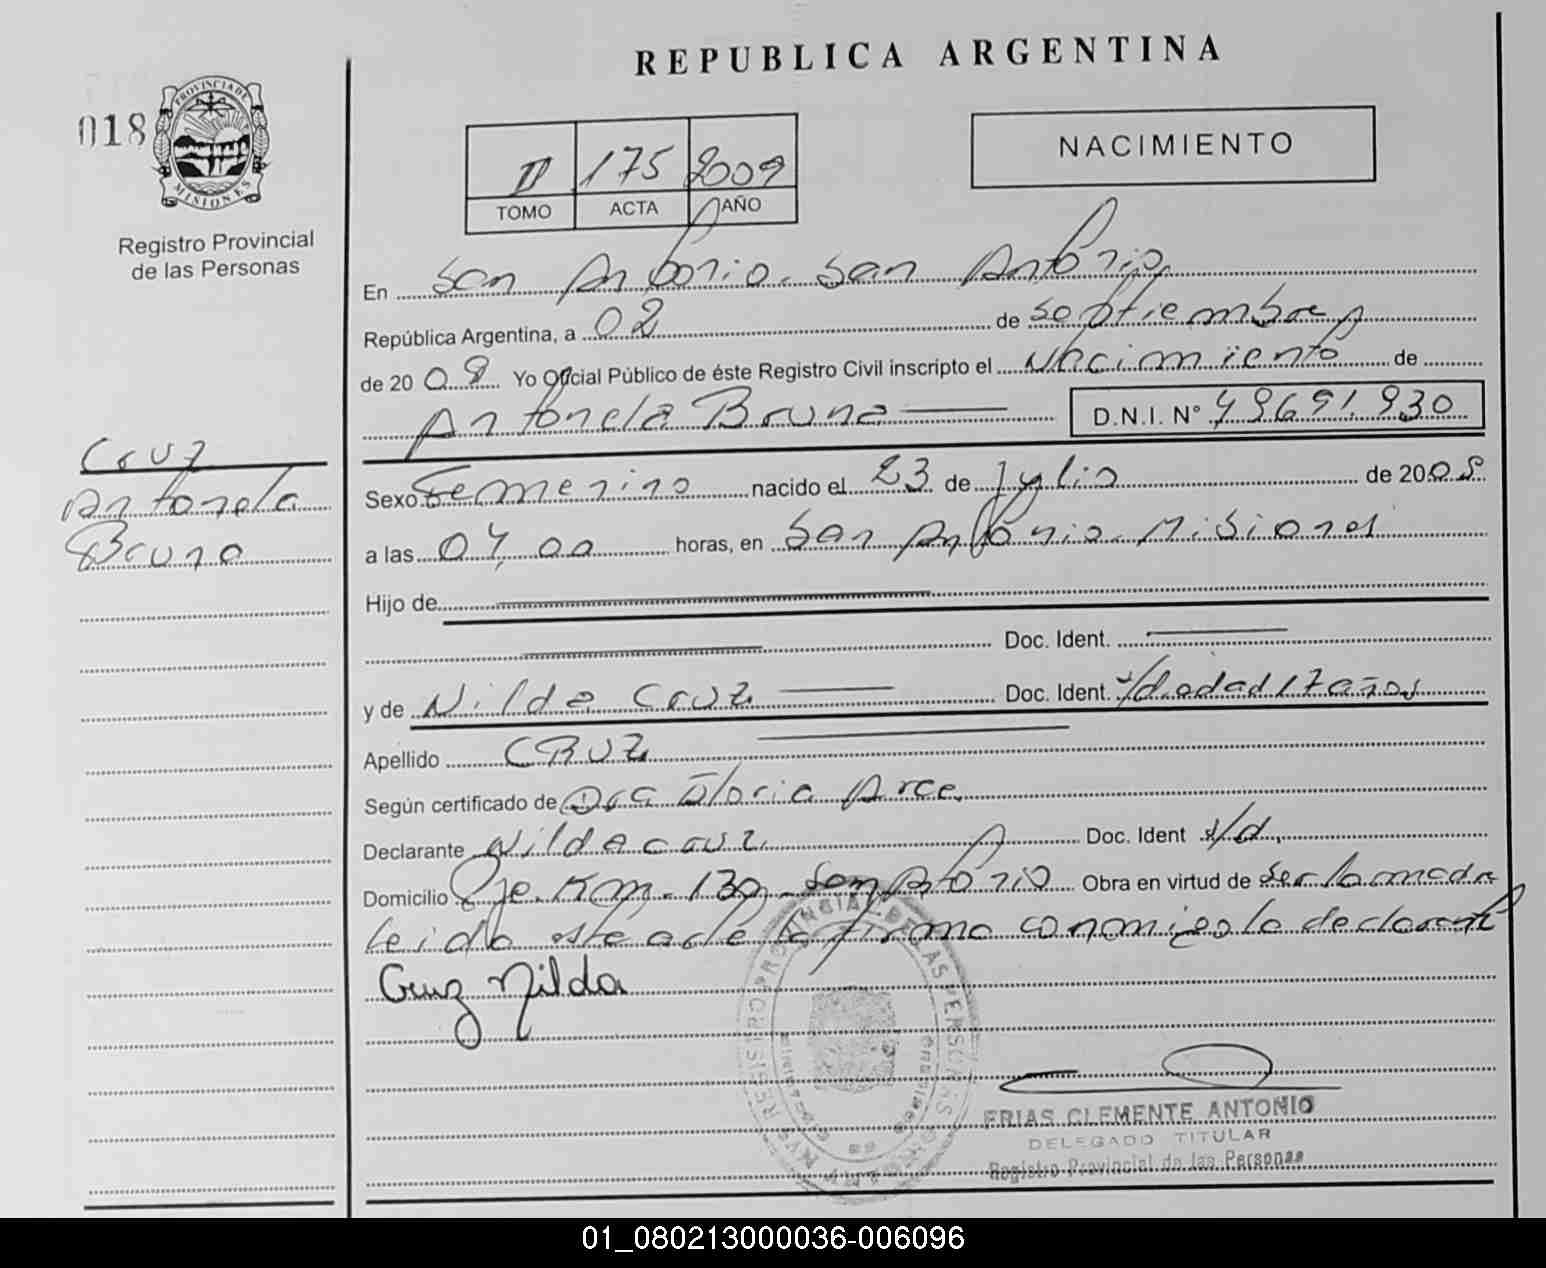 REPUBLICA ARGENTINA
018
PROVINCIA DE
MISIONES
Registro Provincial
de las Personas
II 175 2009
TOMO ACTA AÑO
NACIMIENTO
En San Antonio. San Antonio
República Argentina, a 02 de Septiembre
de 20 09 Yo Oficial Público de éste Registro Civil inscripto el Nacimiento de
Antonela Bruna D.N.I. N° 49.691.930
Cruz
Antonela
Bruna
Sexo Femenino nacido el 23 de Julio de 2009
a las 04,00 horas, en San Antonio. Misiones
Hijo de
Doc. Ident.
y de Nilda Cruz Doc. Ident. s/d. edad 17 años
Apellido CRUZ
Según certificado de Dra Gloria Arce
Declarante Nilda Cruz Doc. Ident s/d.
Domicilio Pje. Km. 130 - San Antonio Obra en virtud de ser la madre
leida este acta la firma conmigo la declarante
Cruz Nilda
REGISTRO PROVINCIAL DE LAS PERSONAS
FRIAS CLEMENTE ANTONIO
DELEGADO TITULAR
Registro Provincial de las Personas
01_080213000036-006096